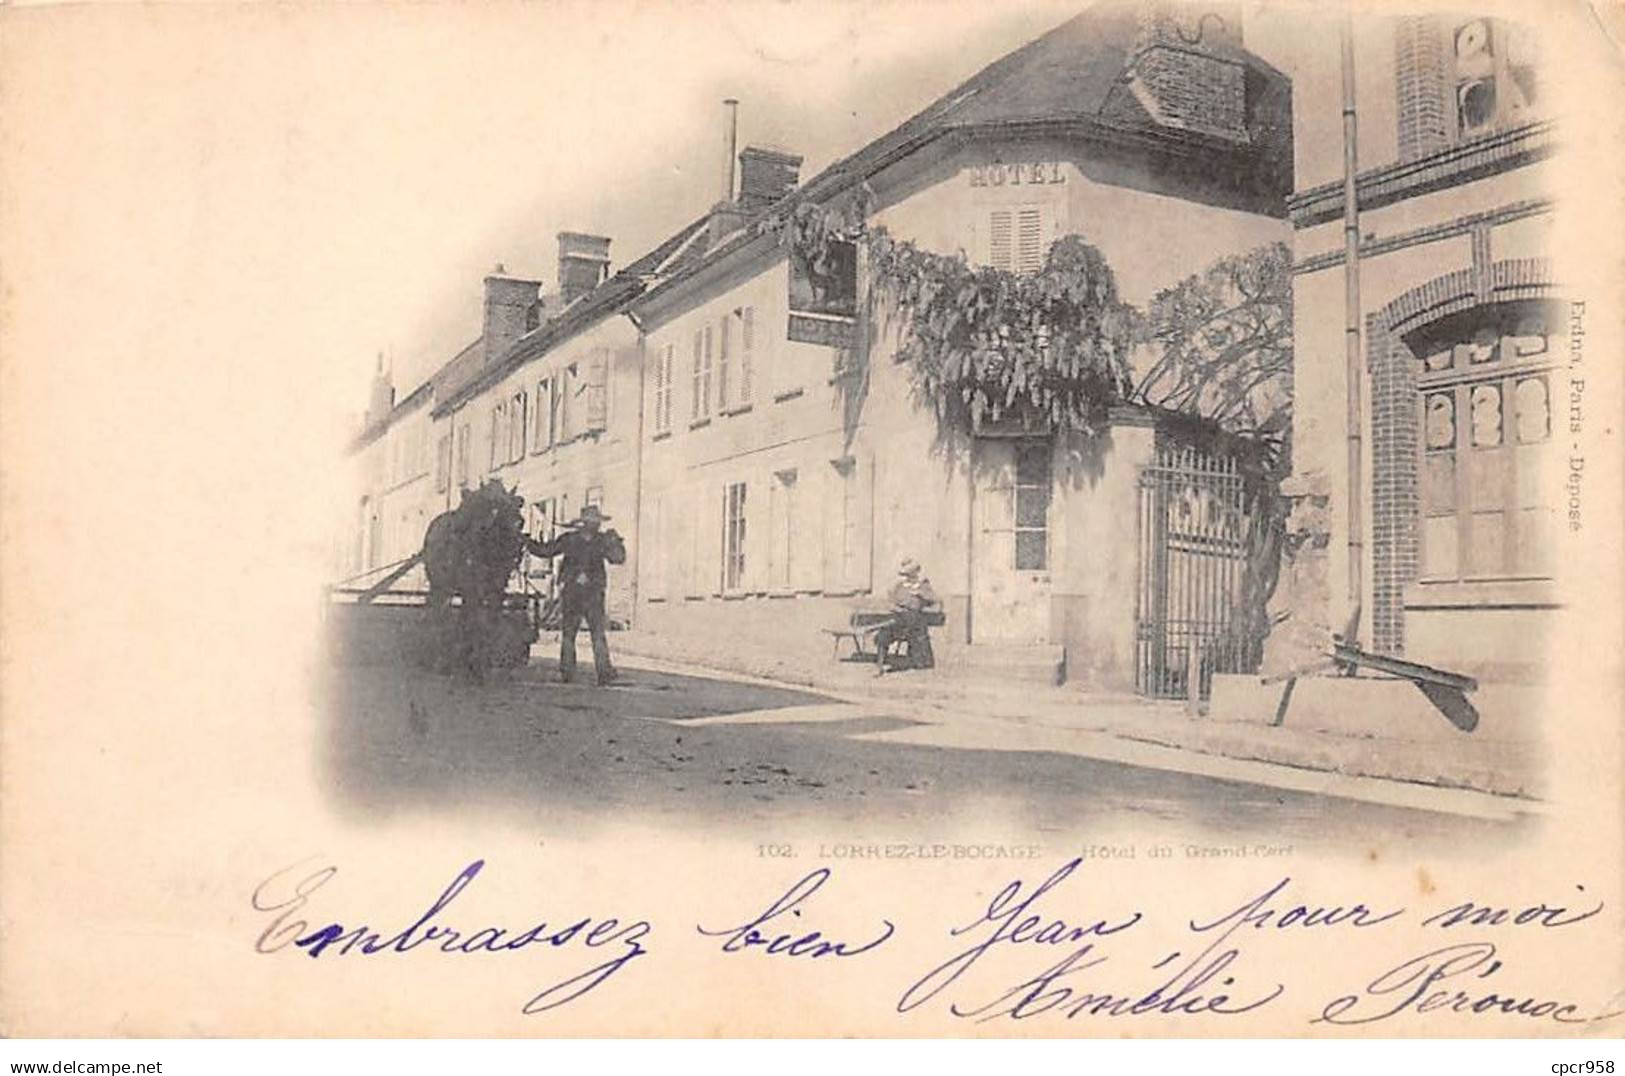 HÔTEL
HOTEL
Erdna, Paris - Déposé
102. LORREZ-LE-BOCAGE - Hôtel du Grand-Cerf
Embrassez bien Jean pour moi
Amélie Pérouse
www.delcampe.net
cpcr958